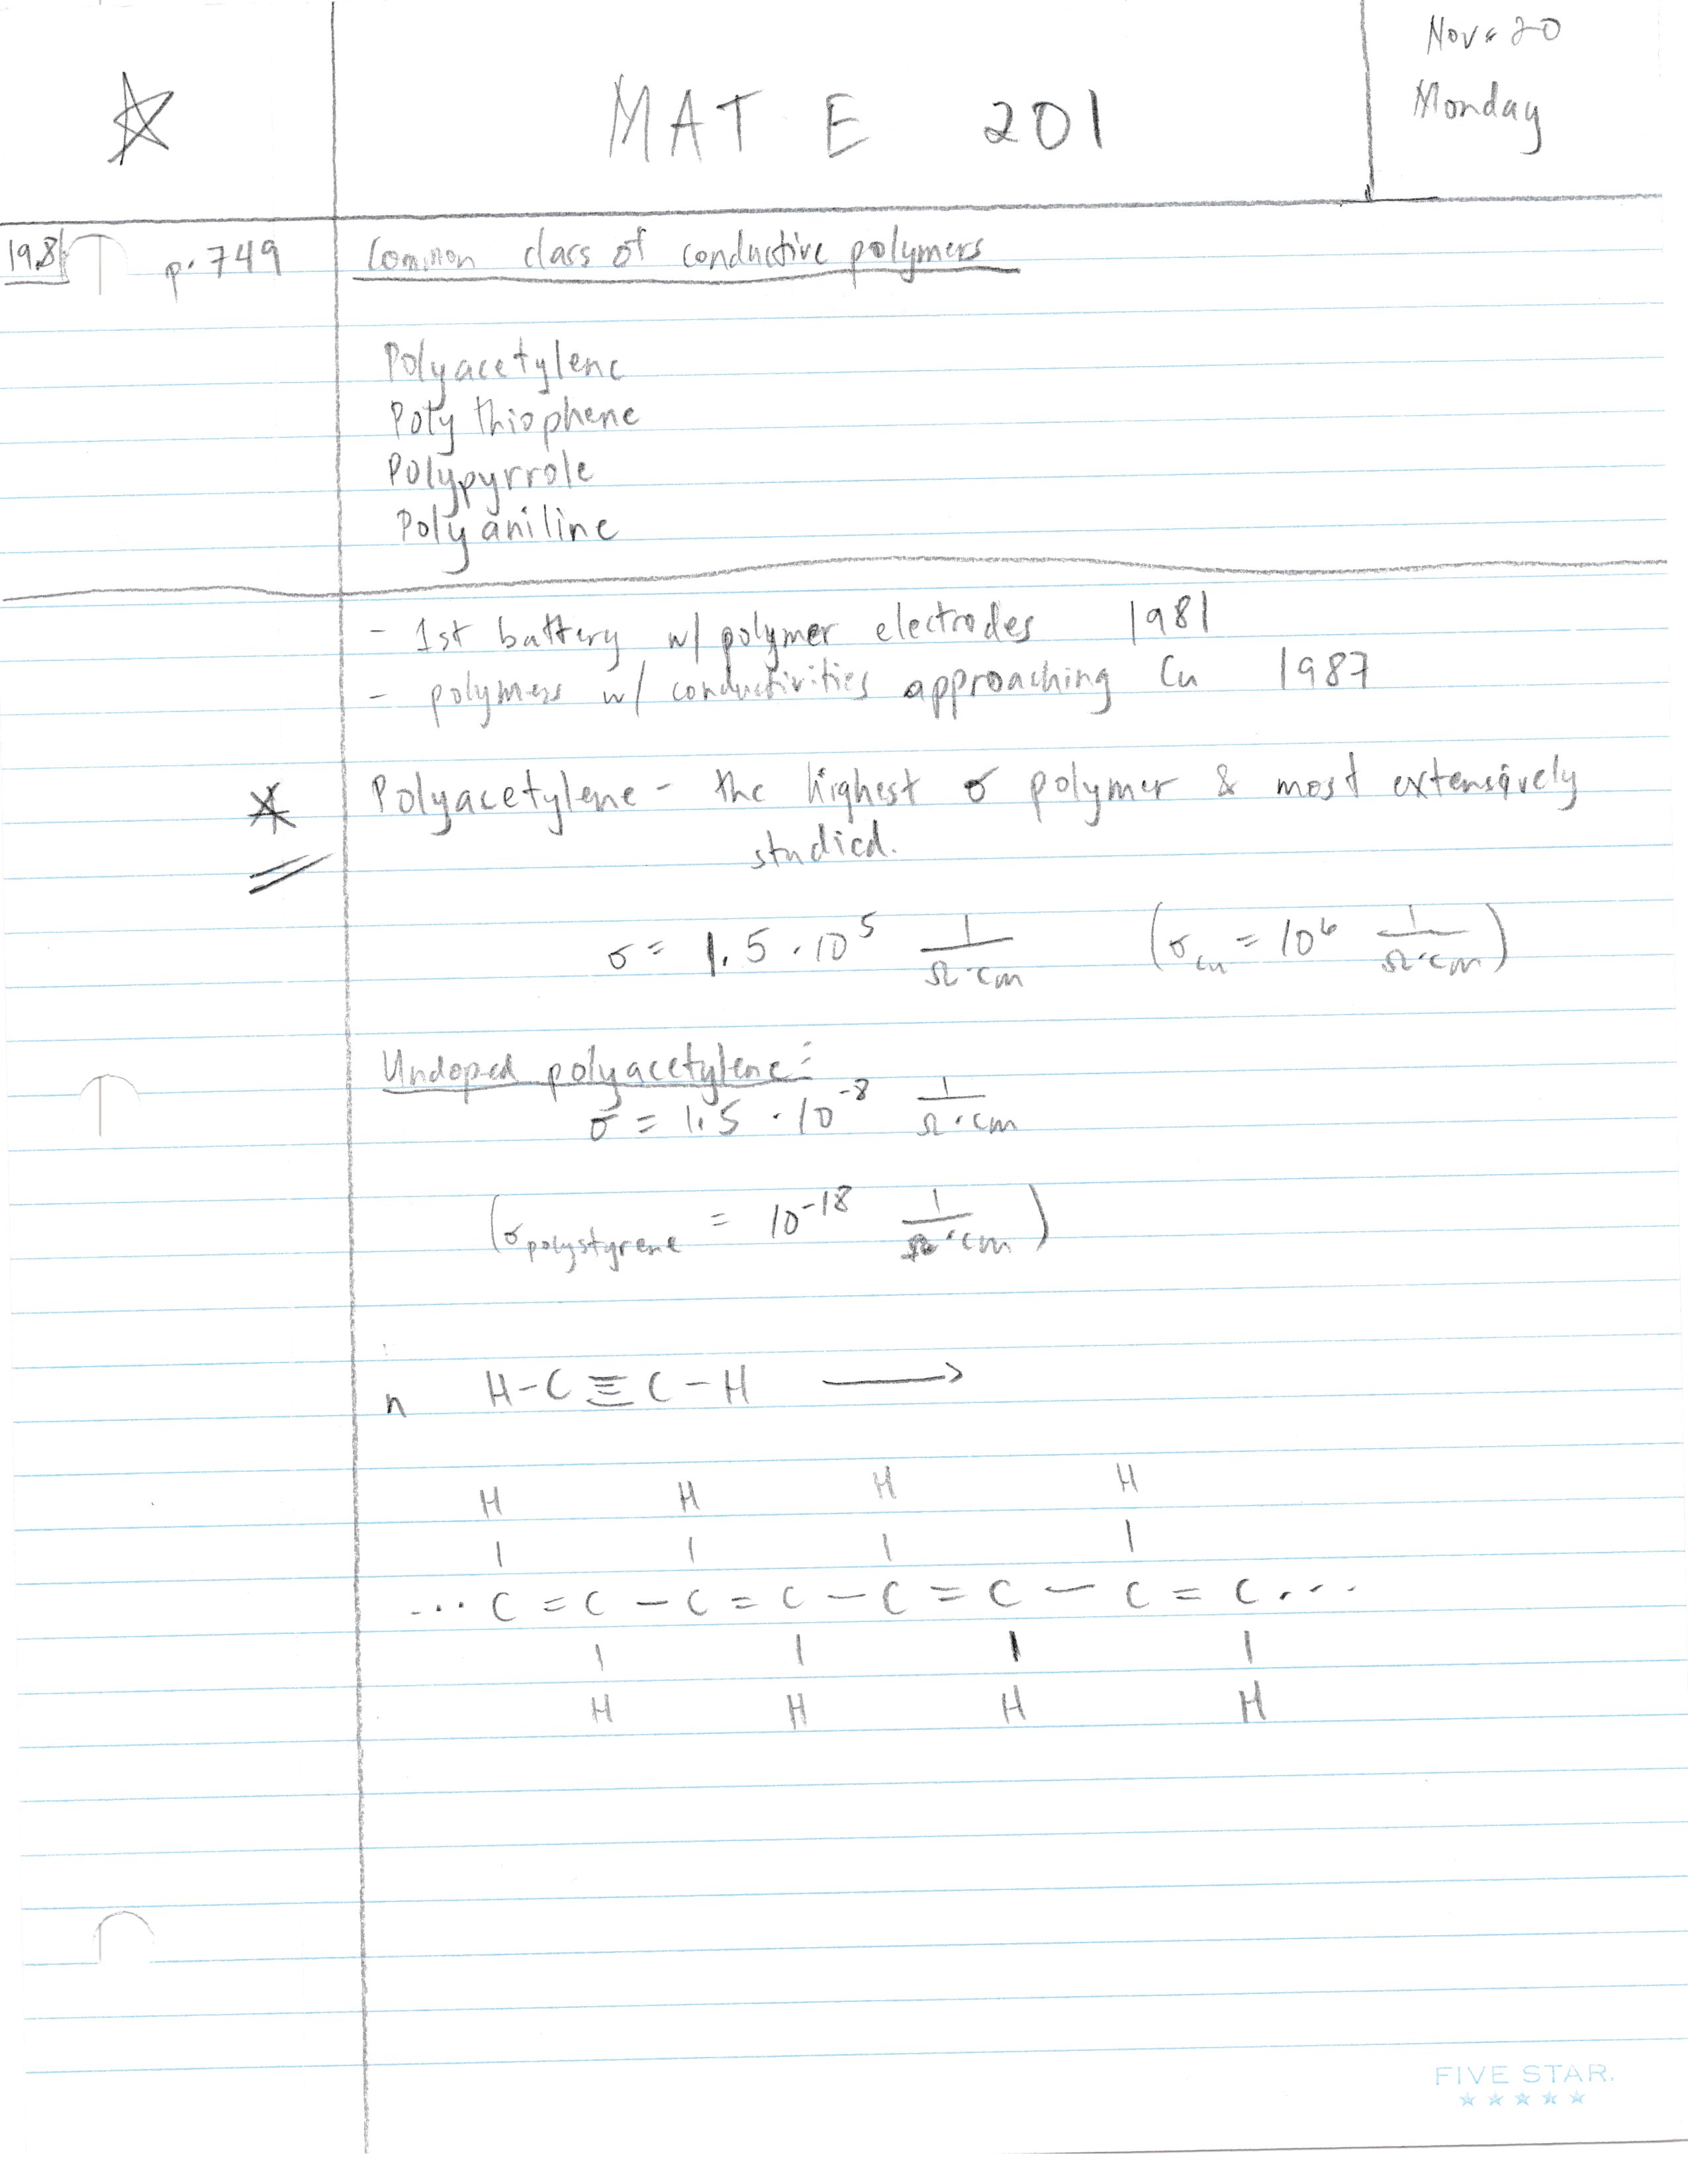 Nov. 20
Monday
MAT E 201
19.8 p. 749 Common class of conductive polymers
Polyacetylene
Polythiophene
Polypyrrole
Polyaniline
- 1st battery w/ polymer electrodes 1981
- polymers w/ conductivities approaching Cu 1987
Polyacetylene - the highest σ polymer & most extensively
studied.
σ = 1.5 · 10⁵ 1/(Ω·cm) (σ_cu = 10⁶ 1/(Ω·cm))
Undoped polyacetylene:
σ = 1.5 · 10⁻⁸ 1/(Ω·cm)
(σ_polystyrene = 10⁻¹⁸ 1/(Ω·cm))
n H-C≡C-H ⟶
H H H H
| | | |
...C=C-C=C-C=C-C=C...
| | | |
H H H H
FIVE STAR.